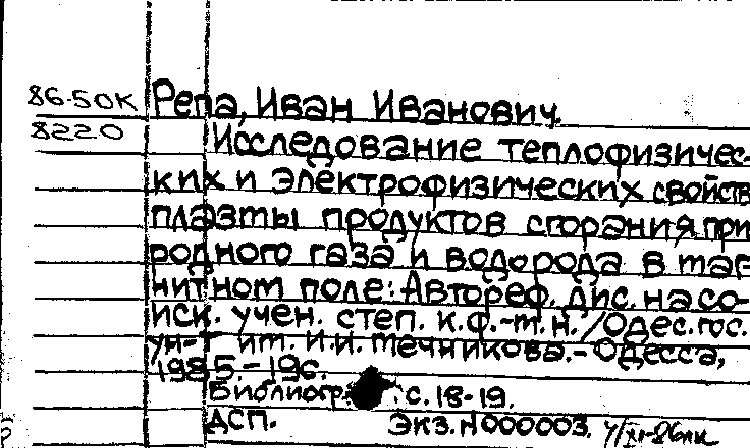 86-50К Репа, Иван Иванович.
8220 Исследование теплофизичес-
ких и электрофизических свойств
плазмы продуктов сгорания при
родного газа и водорода в маг
нитном поле: Автореф. дис. на со-
иск. учен. степ. к.ф.-м.н. / Одес. гос.
ун-т им. И.И. Мечникова. - Одесса,
1985. - 19с.
Библиогр.: с. 18-19.
ДСП. Экз. N 000003.